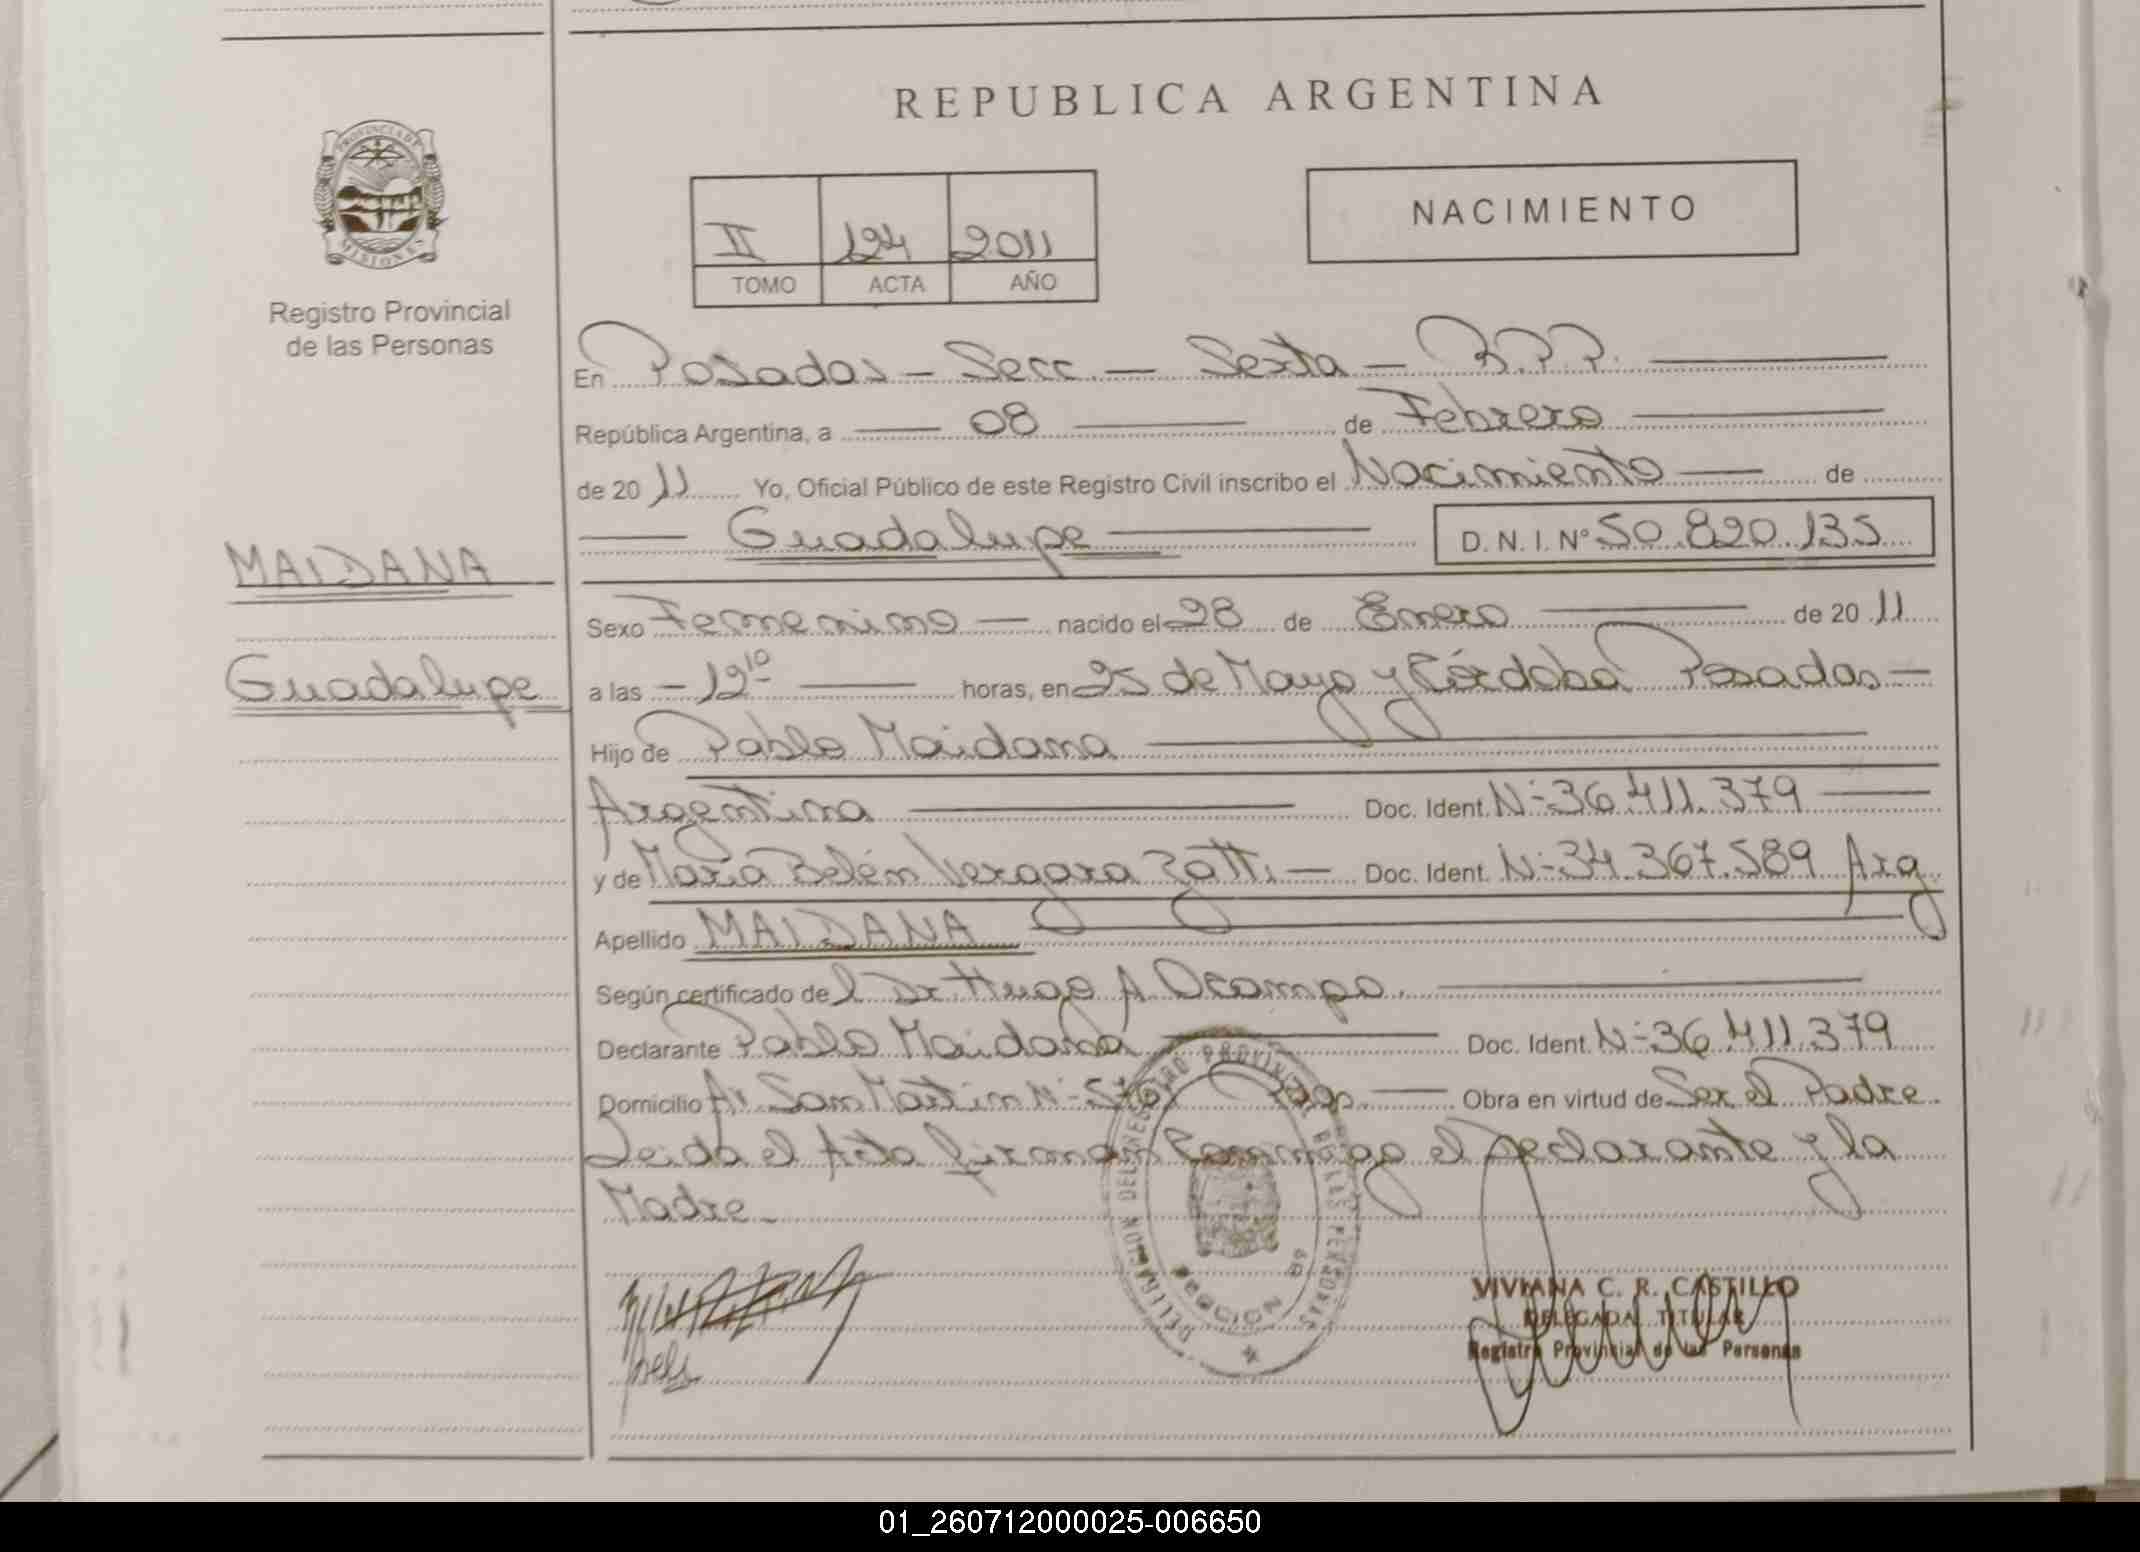 REPUBLICA ARGENTINA
PROVINCIA DE MISIONES
Registro Provincial
de las Personas
II 124 2011
TOMO ACTA AÑO
NACIMIENTO
En Posadas - Secc. - Sexta - R.P.P.
República Argentina, a 08 de Febrero
de 20 11 Yo, Oficial Público de este Registro Civil inscribo el Nacimiento de
Guadalupe D.N.I. Nº 50.820.135
MAIDANA
Guadalupe
Sexo Femenino nacido el 28 de Enero de 20 11
a las 12 10 horas, en 25 de Mayo y Córdoba Posadas
Hijo de Pablo Maidana
Argentina Doc. Ident. Nº 36.411.379
y de María Belén Vergara Zotti Doc. Ident. Nº 34.367.589 Arg
Apellido MAIDANA
Según certificado del Dr Hugo A Ocampo.
Declarante Pablo Maidana Doc. Ident. Nº 36.411.379
Domicilio Aº San Martin Nº Obra en virtud de Ser el Padre.
Leida el Acta firman Conmigo el Declarante y la
Madre
DELEGACION DEL REGISTRO PROVINCIAL DE LAS PERSONAS
SECCION
VIVIANA C. R. CASTILLO
DELEGADA TITULAR
Registro Provincial de las Personas
01_260712000025-006650